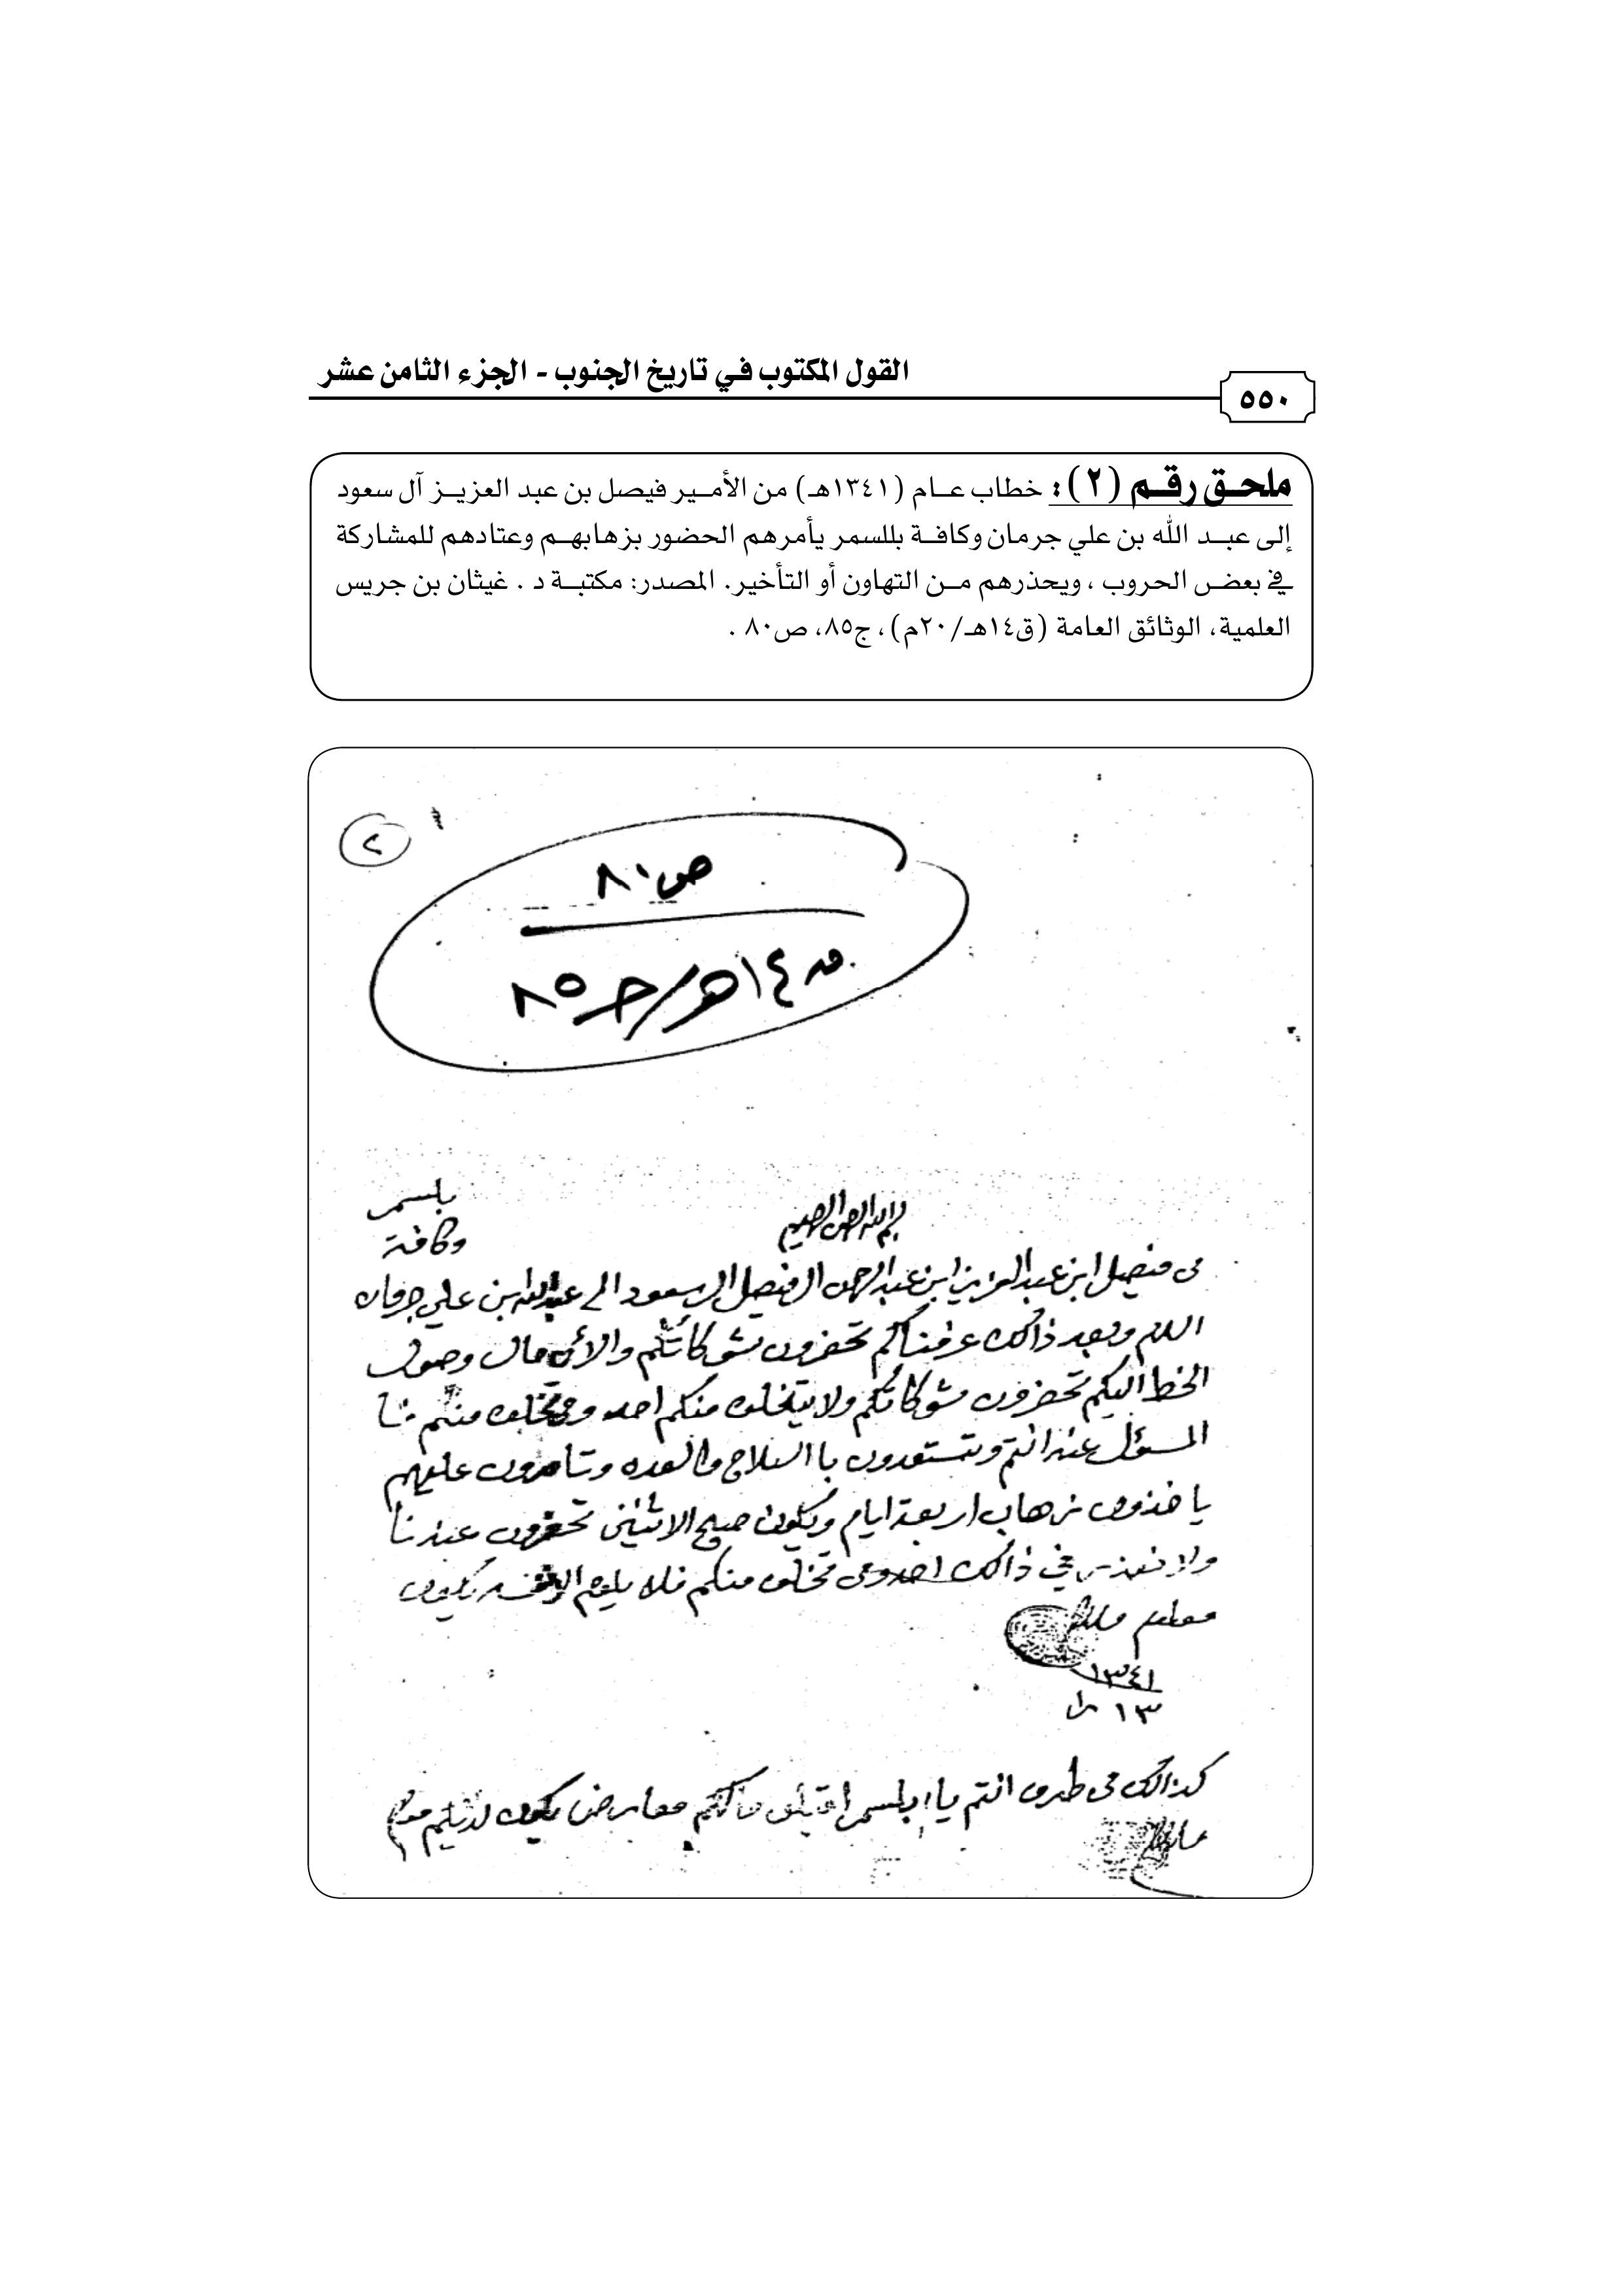 القول المكتوب في تاريخ الجنوب - الجزء الثامن عشر
٥٥٠
ملحق رقم (٢): خطاب عام (١٣٤١هـ) من الأمير فيصل بن عبد العزيز آل سعود
إلى عبد الله بن علي جرمان وكافة بللسمر يأمرهم الحضور بزهابهم وعتادهم للمشاركة
في بعض الحروب ، ويحذرهم من التهاون أو التأخير. المصدر: مكتبة د . غيثان بن جريس
العلمية، الوثائق العامة (ق١٤هـ/٢٠م)، ج٨٥، ص٨٠ .
٢
ص٨٠
ق١٤هـ/ج٨٥
بلسمر
وكافة
بسم الله الرحمن الرحيم
من فيصل ابن عبد العزيز ابن عبد الرحمن الفيصل السعود الى عبدالله بن علي جرمان
وبعد ذالك عرفناكم تحضرون بشوكاتكم والان حال وصول
الخط اليكم تحضرون بشوكاتكم ولا يتخلف منكم احد ومن تخلف منكم
المسؤل عنه انتم وتستعدون با السلاح والعده وتامرون عليهم
ياخذون زهاب اربعة ايام ويكون صبح الاثنين تحضرون عندنا
ولا نعذر في ذالك احد ومن تخلف منكم فلا يلوم الا نفسه يكون
معلوم
١٣٤١
١٣
كذالك من طرف انتم يا بلسمر معارض يكون لديكم